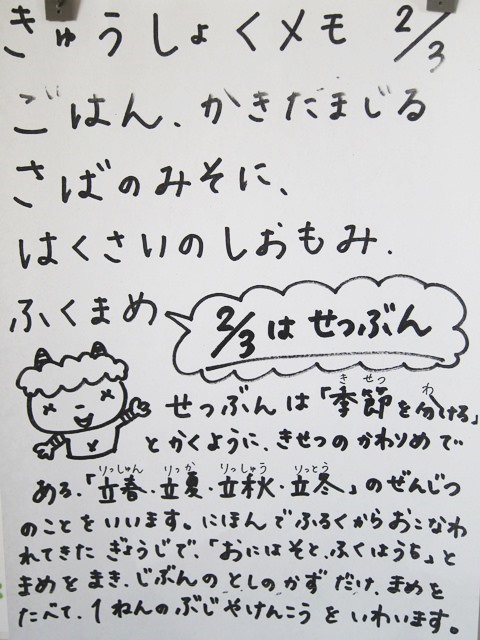 きゅうしょくメモ 2/3
ごはん、かきだまじる
さばのみそに、
はくさいのしおもみ.
ふくまめ
2/3はせつぶん
せつぶんは「季節を分ける」
き せつ わ
とかくように、きせつのかわりめで
ある、「立春・立夏・立秋・立冬」のぜんじつ
りっしゅん りっか りっしゅう りっとう
のことをいいます。にほんでふるくからおこなわ
れてきたぎょうじで、「おにはそと、ふくはうち」と
まめをまき、じぶんのとしのかずだけ、まめを
たべて、1ねんのぶじやけんこうをいわいます。